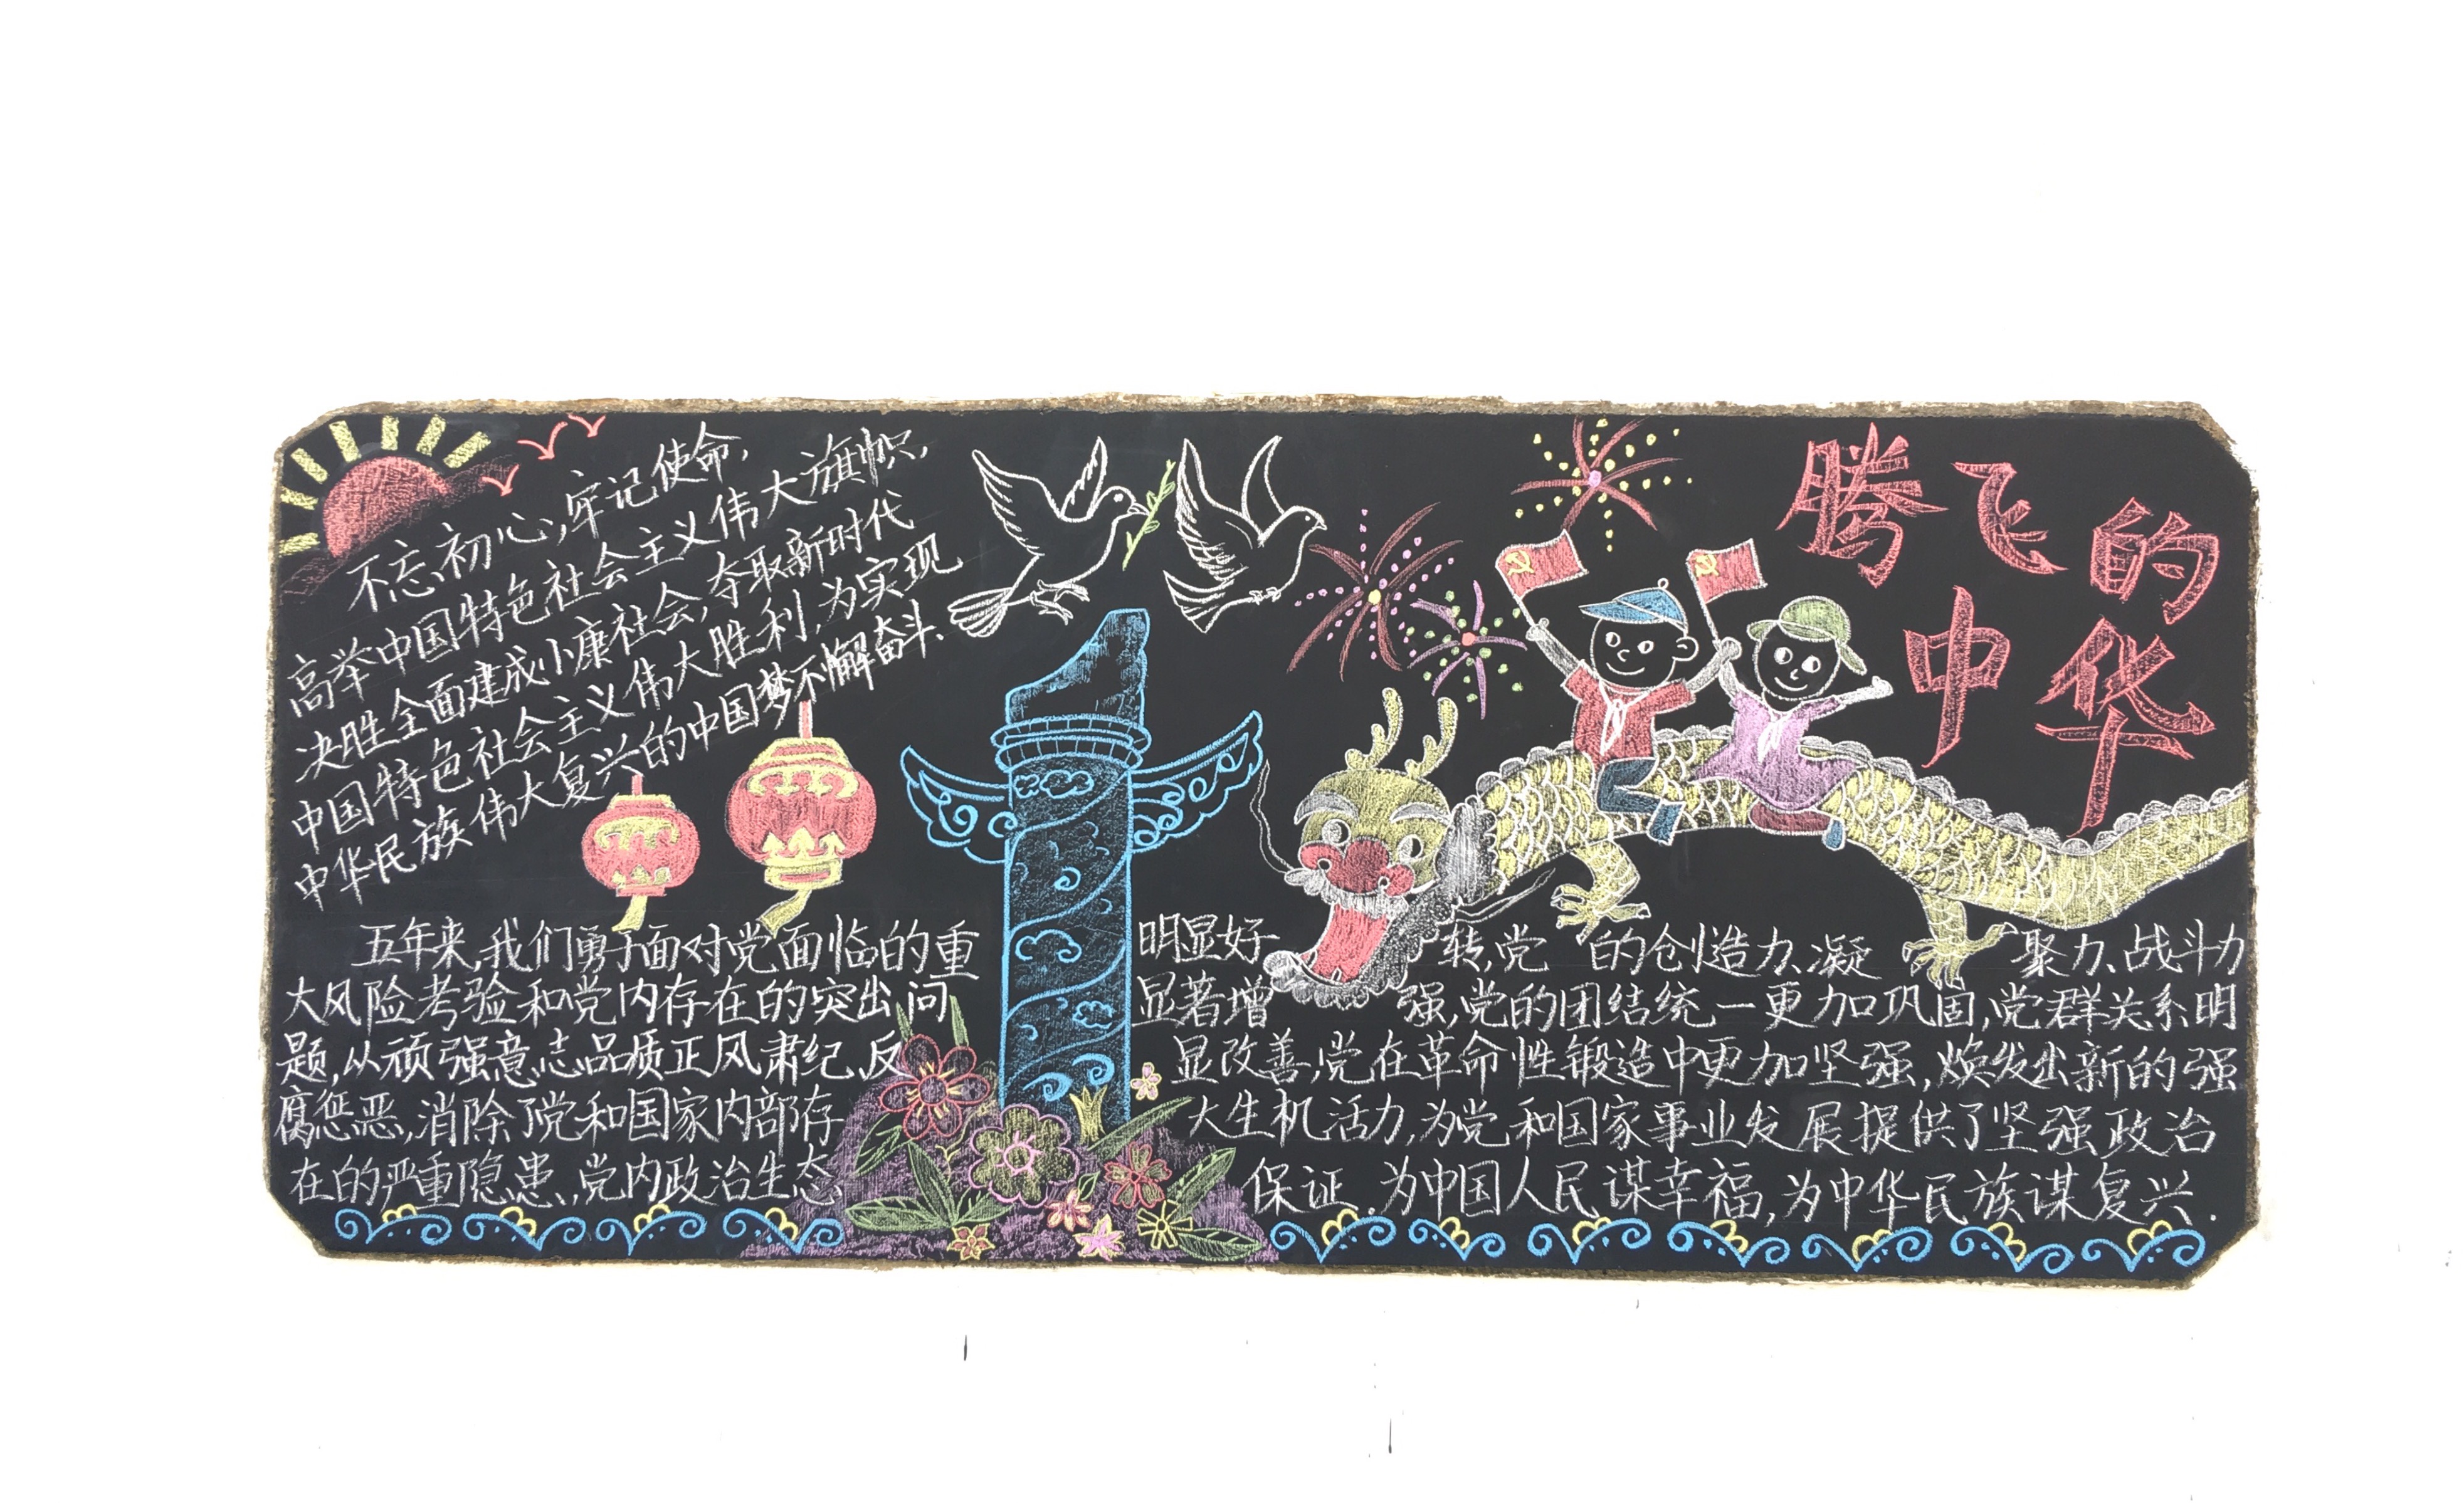 腾飞的
中华
不忘初心,牢记使命,
高举中国特色社会主义伟大旗帜,
决胜全面建成小康社会,夺取新时代
中国特色社会主义伟大胜利,为实现
中华民族伟大复兴的中国梦不懈奋斗.
五年来,我们勇于面对党面临的重
大风险考验和党内存在的突出问
题,从顽强意志品质正风肃纪、反
腐惩恶,消除了党和国家内部存
在的严重隐患,党内政治生态
明显好转,党的创造力、凝聚力、战斗力
显著增强,党的团结统一更加巩固,党群关系明
显改善,党在革命性锻造中更加坚强,焕发出新的强
大生机活力,为党和国家事业发展提供了坚强政治
保证.为中国人民谋幸福,为中华民族谋复兴.